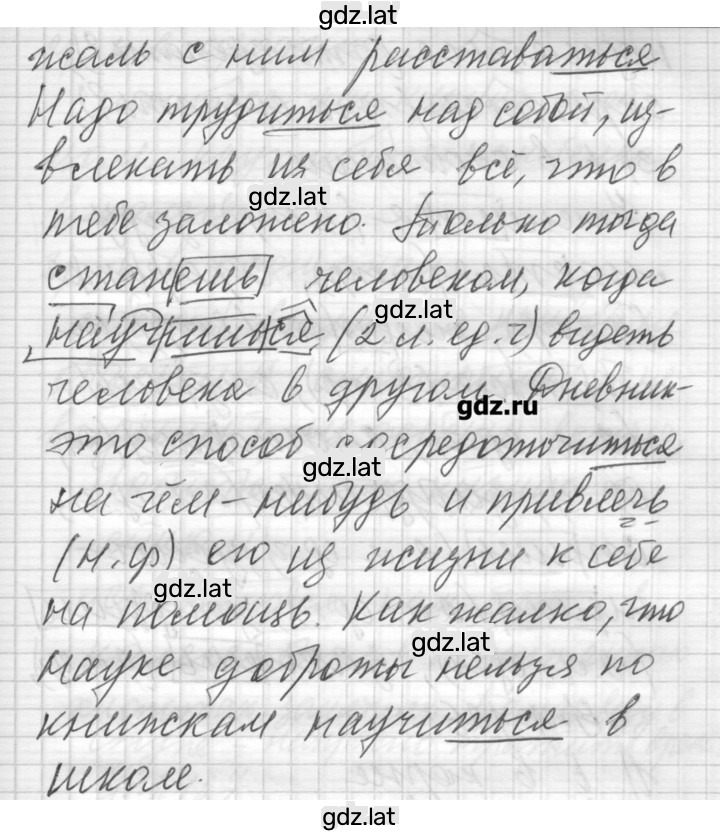 gdz.lat
жаль с ним расставаться
Надо трудиться над собой, из-
влекать из себя всё, что в
gdz.lat
тебе заложено. Только тогда
станешь человеком, когда
gdz.lat
научишься (2 л. ед. ч) видеть
человека в другом. Дневник-
gdz.ru
это способ сосредоточиться
gdz.lat
на чём-нибудь и привлечь
(н.ф) его из жизни к себе
gdz.lat
на помощь. Как жалко, что
gdz.lat
науке доброты нельзя по
книжкам научиться в
школе.
gdz.lat